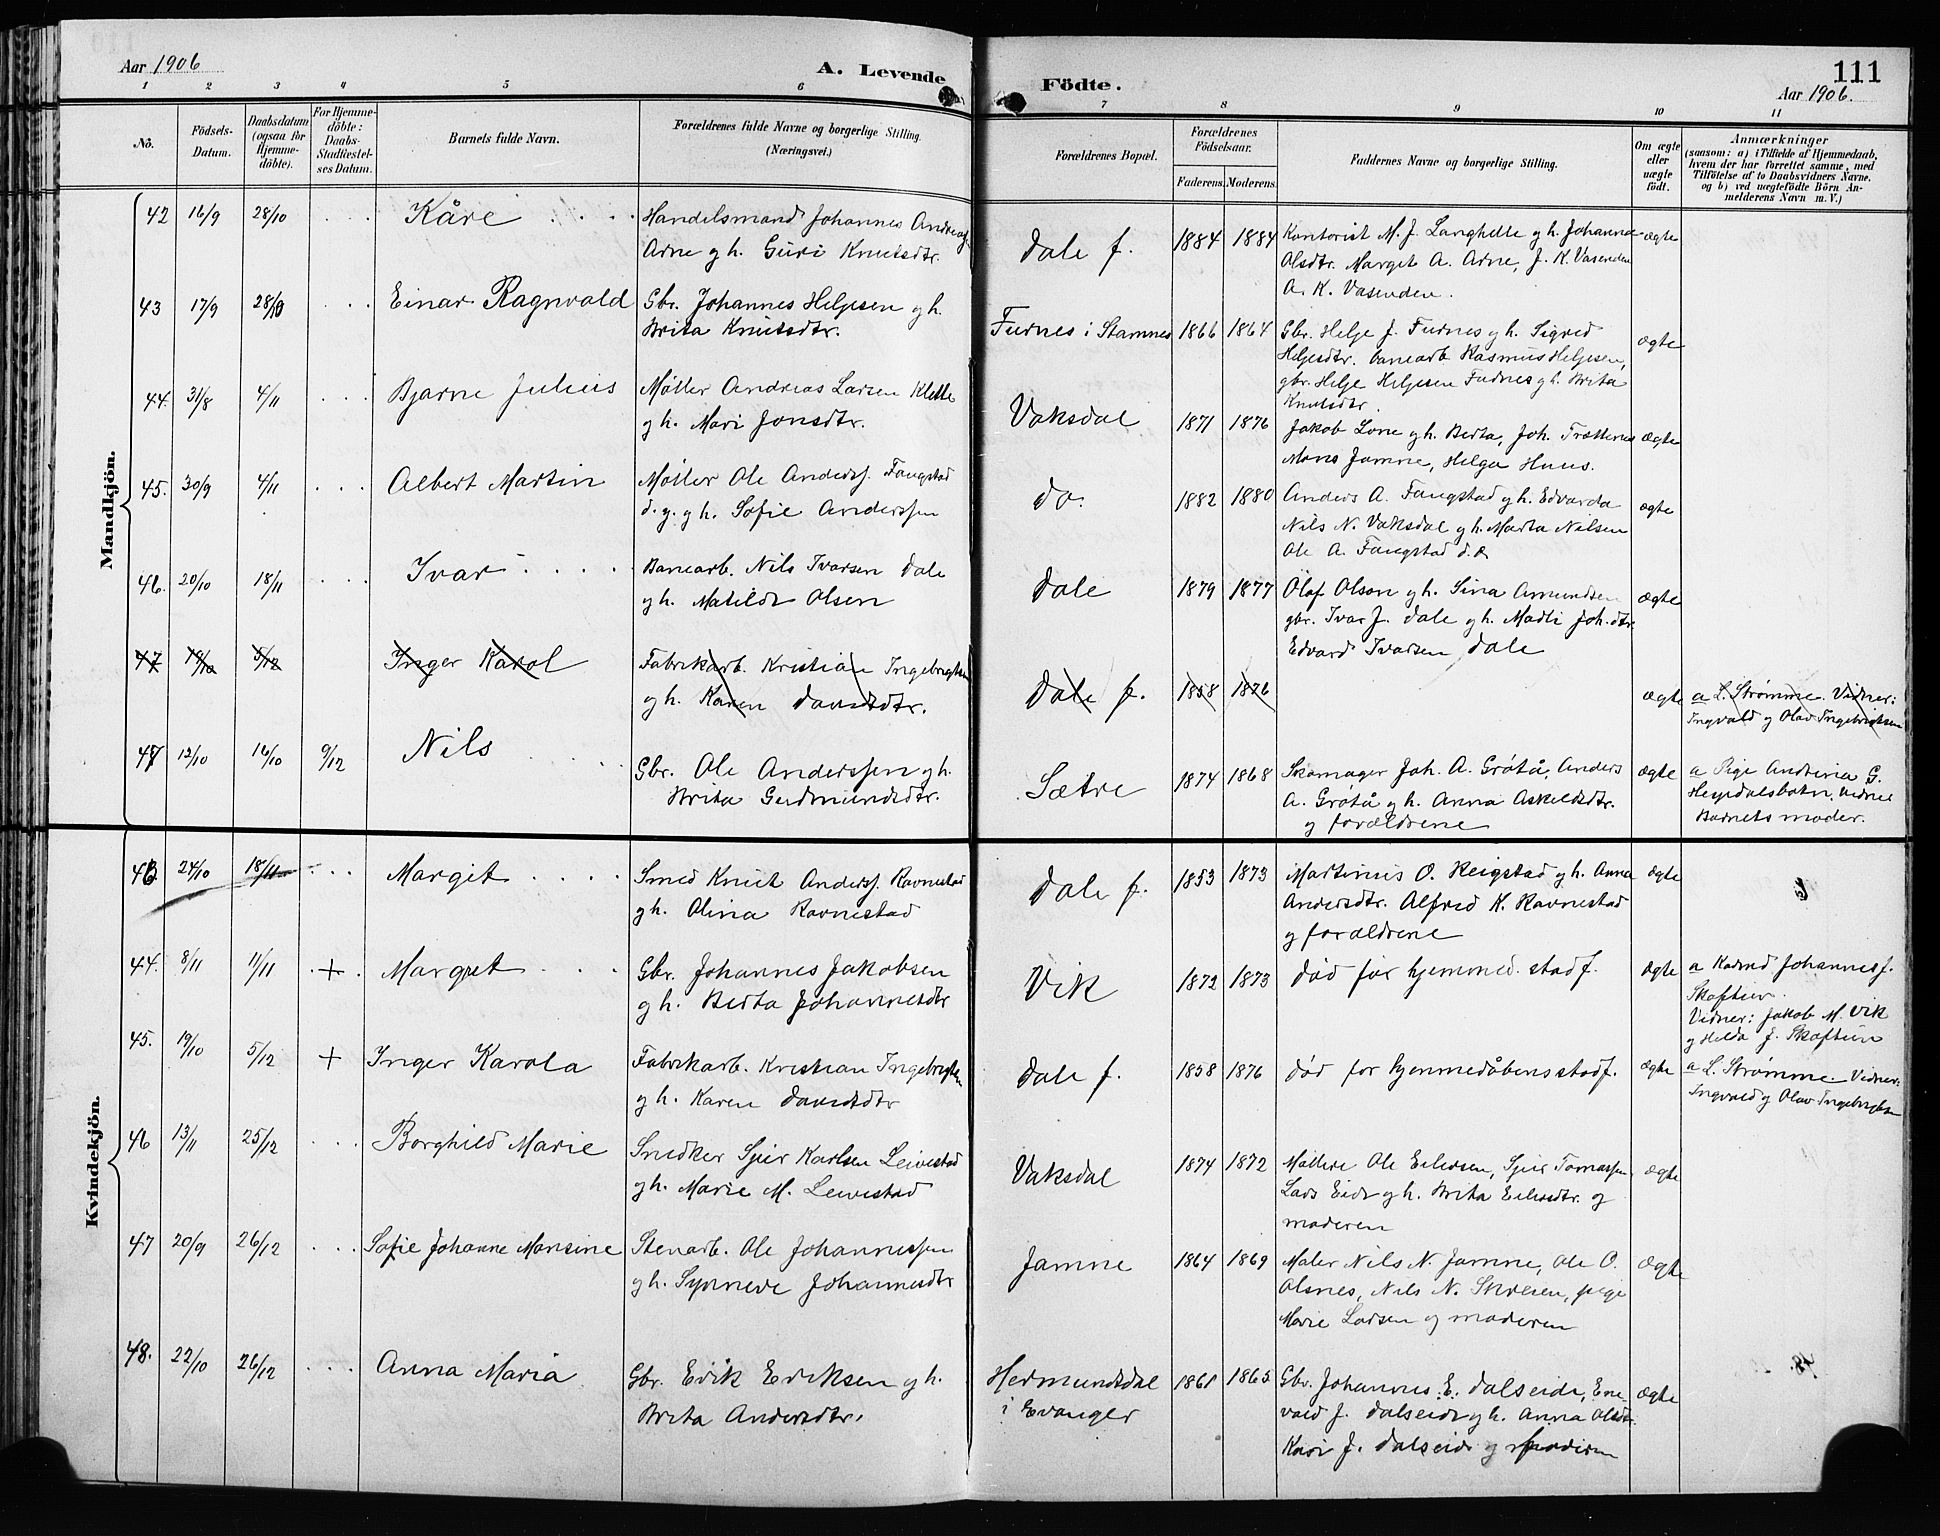 Aar 1906
A. Levende
Födte.
111
Aar 1906.
1 2 3 4 5 6 7 8 9 10 11
No.
Födsels-
Datum.
Daabsdatum
(ogsaa for
Hjemme-
döbte).
For Hjemme-
döbte:
Daabs-
Stadfestel-
ses Datum.
Barnets fulde Navn.
Forældrenes fulde Navne og borgerlige Stilling.
(Næringsvei.)
Forældrenes Bopæl.
Forældrenes
Födselsaar.
Faderens. Moderens.
Faddernes Navne og borgerlige Stilling.
Om ægte
eller
uægte
födt.
Anmærkninger
(saasom: a) i Tilfælde af Hjemmedaab,
hvem der har forrettet samme, med
Tilföielse af to Daabsvidners Navne,
og b) ved uægtefödte Börn An-
melderens Navn m. V.)
Mandkjön.
42 16/9 28/10 Kåre Handelsmand Johannes Andreas
Arne gh. Guri Knutsdtr.
Dale f. 1884 1884 Kontorist M. J. Langhelle gh. Johanna ægte
Olsdtr. Marget A. Arne, J. K. Vasenden
A. K. Vasenden.
43 17/9 28/10 Einar Ragnvald Gbr. Johannes Heljesen gh.
Brita Knutsdtr.
Furnes i Stamnes 1866 1864 Gbr. Helje J. Furnes gh. Sigrid ægte
Heljesdtr. banearb Rasmus Heljesen,
gbr. Helje Heljesen Fudnes gh. Brita
Knutsdtr.
44. 31/8 4/11 Bjarne Julius Møller Andreas Larsen Klette
gh. Mari Jonsdtr.
Vaksdal 1871 1876 Jakob Lone gh. Berta, Joh. Trættenes ægte
Mons Jamne, Helga Huus.
45. 30/9 4/11 Albert Martin Møller Ole Anderss. Fangstad
d.y. gh. Sofie Anderssen
do. 1882 1880 Anders A. Fangstad gh. Edvarda ægte
Nils N. Vaksdal gh. Marta Nilsen
Ole A. Fangstad d.æ
46. 20/10 18/11 Ivar Banearb. Nils Ivarsen Dale
gh. Matilde Olsen
Dale 1879 1877 Olaf Olson gh. Sina Amundsen ægte
gbr. Ivar J. Dale gh. Madli Joh.dtr.
Edvard Ivarsen Dale
47 19/10 5/12 Inger Karol Fabrikarb. Kristian Ingebrigtsen
gh. Karen Davidsdtr.
Dale f. 1858 1876 ægte a L. Strømme. Vidner:
Ingvald og Olav Ingebrigtsen
47 12/10 16/10 9/12 Nils Gbr. Ole Anderssen gh.
Brita Gudmundsdtr.
Sætre 1874 1868 Skomager Joh. A. Grøtå, Anders ægte a Pige Andrina G.
A. Grøtå gh. Anna Askeldsdtr. Vidner
og forældrene Barnets moder.
Kvindekjön.
43 24/10 18/11 Margit Smed Knut Anderss. Ravnestad
gh. Olina Ravnestad
Dale f. 1853 1873 Martinus O. Reigstad gh. Anna ægte
Andersdtr. Alfred K. Ravnestad
og forældrene
44. 8/11 11/11 + Margret Gbr. Johannes Jakobsen
gh. Berta Johannesdtr
Vik 1872 1873 død før hjemmed. stadf. ægte a Johannes J.
Skaftun.
Vidner: Jakob M. Vik
og Helda J. Skaftun
45. 19/10 5/12 + Inger Karola Fabrikarb. Kristian Ingebrigtsen
gh. Karen Davidsdtr
Dale f. 1858 1876 død før hjemmedåbens stadf. ægte a L. Strømme. Vidner:
Ingvald og Olav Ingebrigtsen
46 13/11 25/12 Borghild Marie Snedker Sjur Karlsen Leivestad
gh. Marie M. Leivestad
Vaksdal 1874 1872 Møllere Ole Eilersen, Sjur Tomassen ægte
Lars Eide gh. Brita Eilersdtr. og
moderen
47 20/9 26/12 Sofie Johanne Monsine Stenarb. Ole Johannessen
gh. Synneve Johannesdtr
Jamne 1864 1869 Maler Nils N. Jamne, Ole O. ægte
Olsnes, Nils N. pige
Marie Larsen og moderen
48. 22/10 26/12 Anna Maria Gbr. Erik Eriksen gh.
Brita Andersdtr.
Hermundsdal
i Evanger
1861 1865 Gbr. Johannes E. Dalseide, Ene- ægte
vald J. Dalseide gh. Anna Olsdtr.
Kari J. Dalseide og moderen